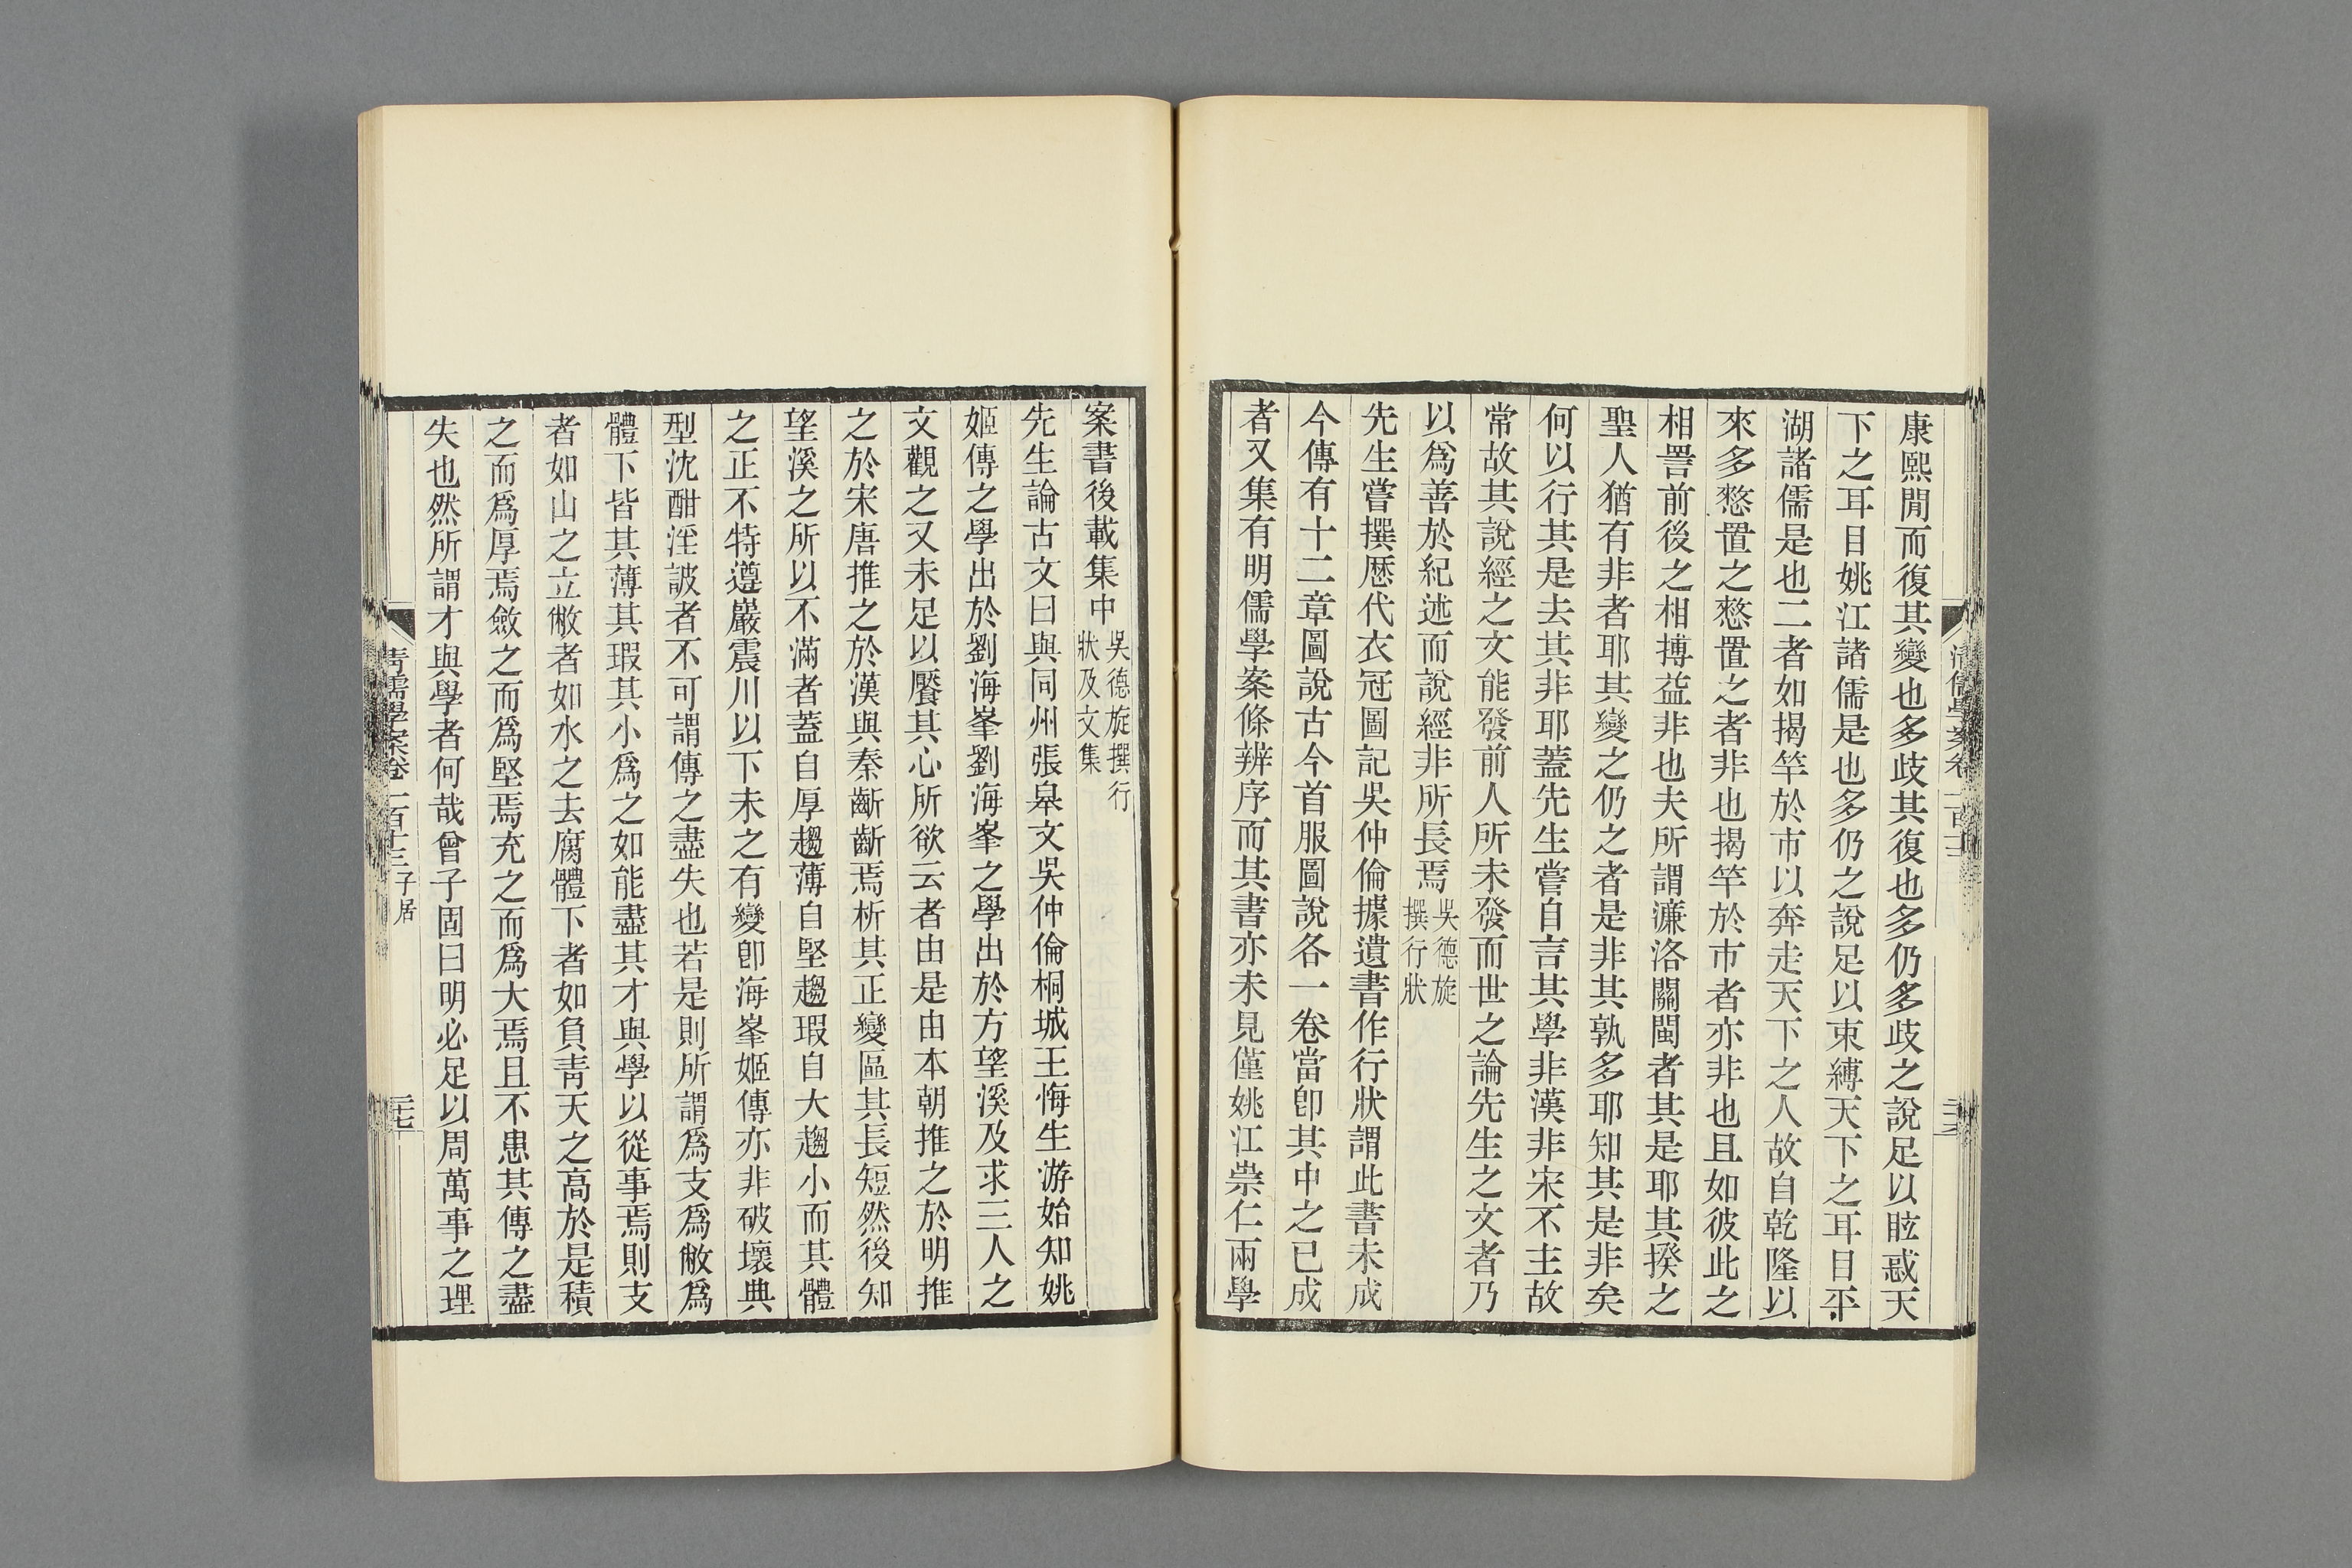 康熙閒而復其變也多歧其復也多仍多歧之說足以眩惑天
下之耳目姚江諸儒是也多仍之說足以束縛天下之耳目平
湖諸儒是也二者如揭竿於市以奔走天下之人故自乾隆以
來多憗置之憗置之者非也揭竿於市者亦非也且如彼此之
相詈前後之相搏益非也夫所謂濂洛關閩者其是耶其揆之
聖人猶有非者耶其變之仍之者是非其孰多耶知其是非矣
何以行其是去其非耶蓋先生嘗自言其學非漢非宋不主故
常故其說經之文能發前人所未發而世之論先生之文者乃
以爲善於紀述而說經非所長焉吳德旋撰行狀
先生嘗撰歷代衣冠圖記吳仲倫據遺書作行狀謂此書未成
今傳有十二章圖說古今首服圖說各一卷當卽其中之已成
者又集有明儒學案條辨序而其書亦未見僅姚江崇仁兩學
案書後載集中吳德旋撰行狀及文集
先生論古文曰與同州張皋文吳仲倫桐城王悔生游始知姚
姬傳之學出於劉海峯劉海峯之學出於方望溪及求三人之
文觀之又未足以饜其心所欲云者由是由本朝推之於明推
之於宋唐推之於漢與秦齗齗焉析其正變區其長短然後知
望溪之所以不滿者蓋自厚趨薄自堅趨瑕自大趨小而其體
之正不特遵巖震川以下未之有變卽海峯姬傳亦非破壞典
型沈酣淫詖者不可謂傳之盡失也若是則所謂爲支爲敝爲
體下皆其薄其瑕其小爲之如能盡其才與學以從事焉則支
者如山之立敝者如水之去腐體下者如負靑天之高於是積
之而爲厚焉斂之而爲堅焉充之而爲大焉且不患其傳之盡
失也然所謂才與學者何哉曾子固曰明必足以周萬事之理
清儒學案卷一百十三 子居
二七